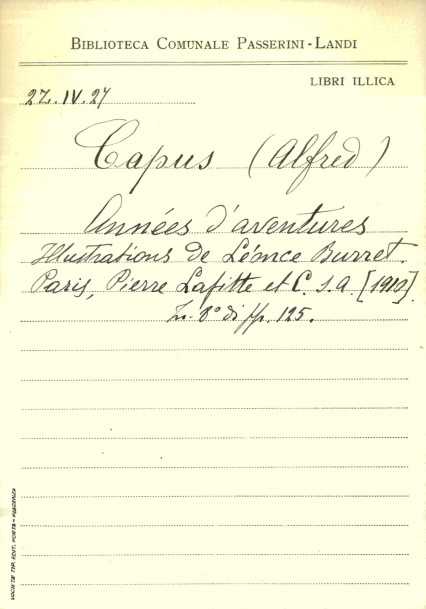 BIBLIOTECA COMUNALE PASSERINI-LANDI
LIBRI ILLICA
27.IV.27
Capus (Alfred)
Années d'aventures
Illustrations de Léonce Burret.
Paris, Pierre Lafitte et C. S.A. [1910].
In 8° di pp. 125.
SOCIETÀ TIP. EDIT. PORTA - PIACENZA